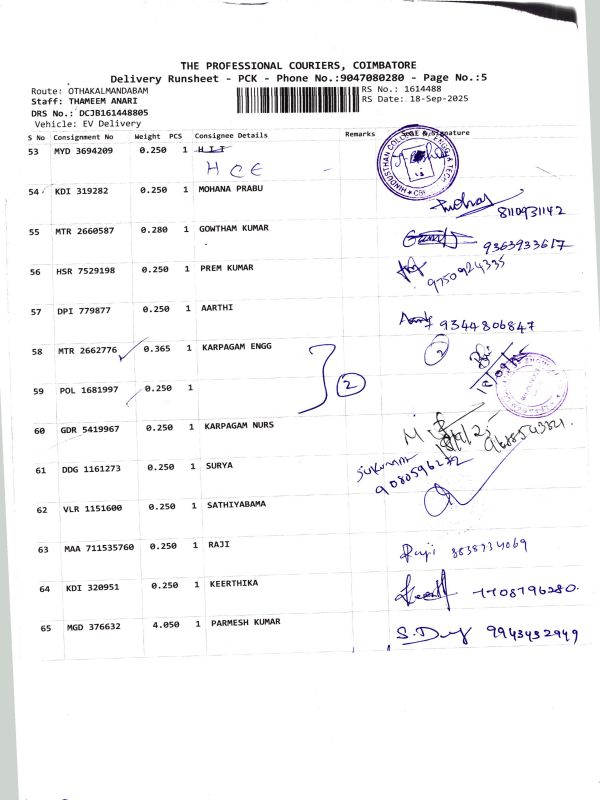 THE PROFESSIONAL COURIERS, COIMBATORE
Delivery Runsheet - PCK - Phone No.:9047080280 - Page No.:5
Route: OTHAKALMANDABAM
RS No.: 1614488
Staff: THAMEEM ANARI
RS Date: 18-Sep-2025
DRS No.: DCJB161448805
Vehicle: EV Delivery
S No Consignment No Weight PCS Consignee Details Remarks Signature
53 MYD 3694209 0.250 1 HIT
HCE
HINDUSTHAN COLLEGE OF ENGG & TECH
CBE
54 KDI 319282 0.250 1 MOHANA PRABU
8110931142
55 MTR 2660587 0.280 1 GOWTHAM KUMAR
9363933617
56 HSR 7529198 0.250 1 PREM KUMAR
9750924335
57 DPI 779877 0.250 1 AARTHI
9344806847
58 MTR 2662776 0.365 1 KARPAGAM ENGG
2
59 POL 1681997 0.250 1
2
60 GDR 5419967 0.250 1 KARPAGAM NURS
61 DDG 1161273 0.250 1 SURYA
9080596272
62 VLR 1151600 0.250 1 SATHIYABAMA
63 MAA 711535760 0.250 1 RAJI
Raji 8838734069
64 KDI 320951 0.250 1 KEERTHIKA
7708796280
65 MGD 376632 4.050 1 PARMESH KUMAR
9943432949